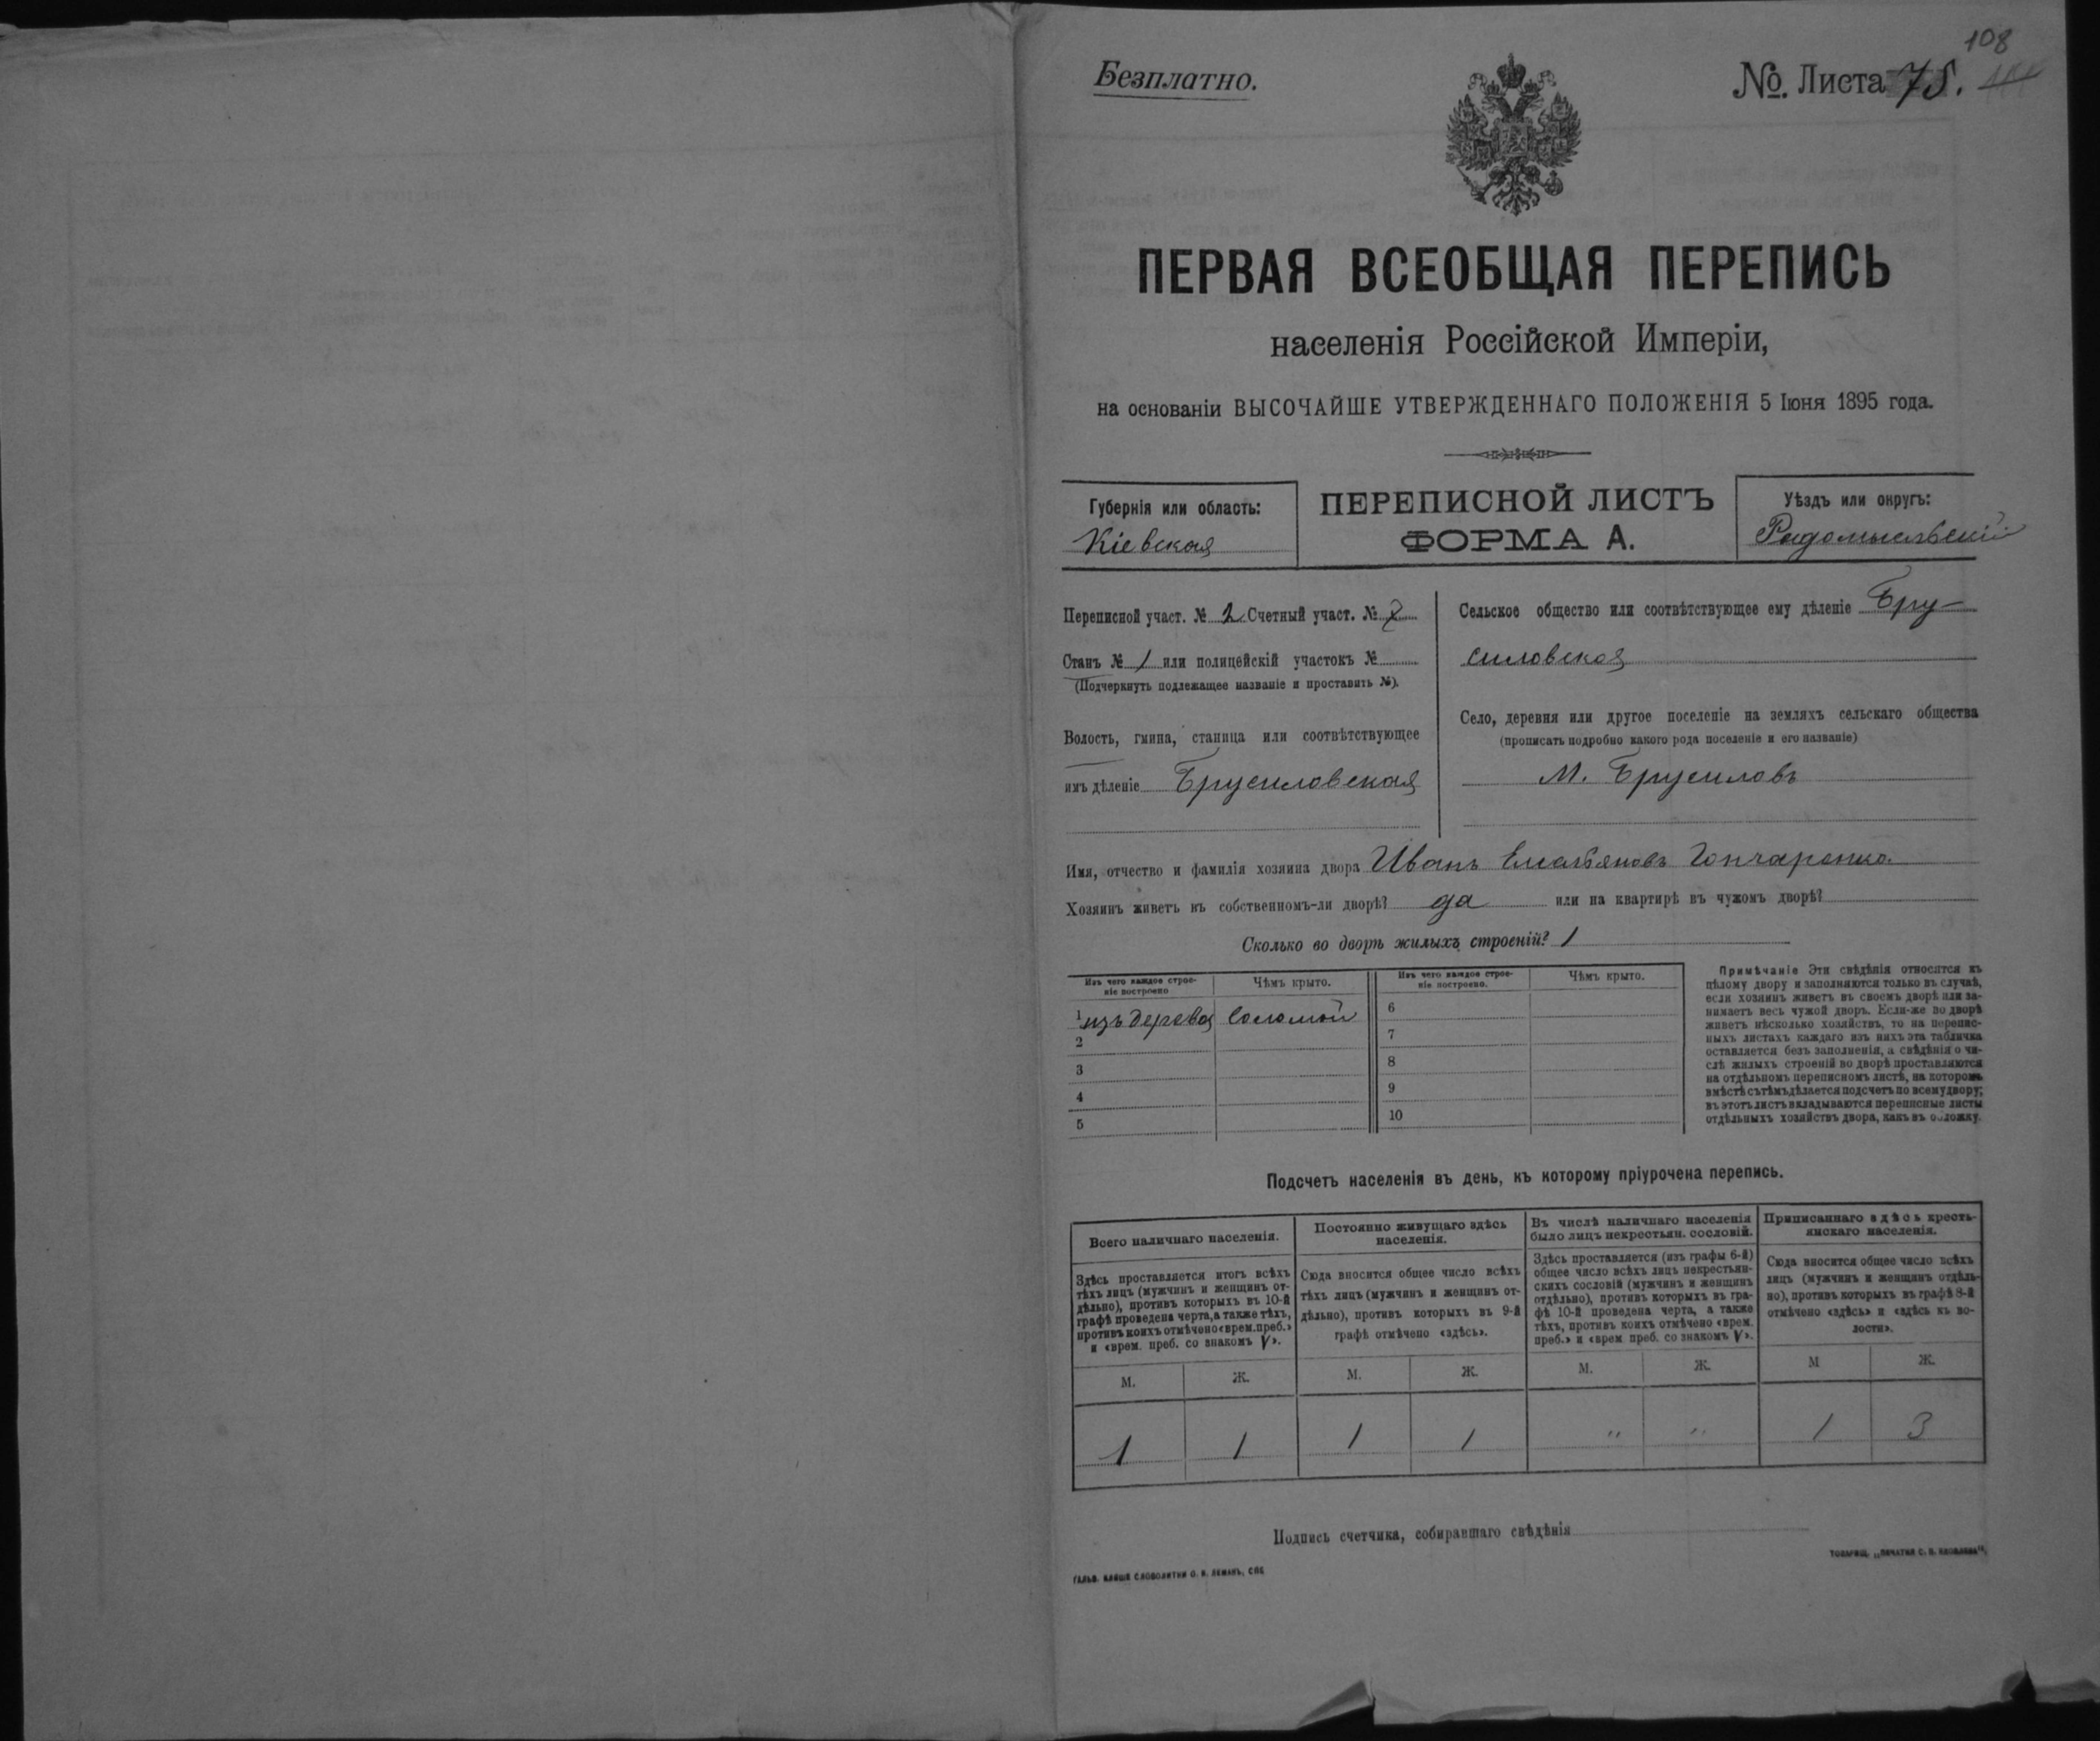 108
Безплатно.
№. Листа 75.
ПЕРВАЯ ВСЕОБЩАЯ ПЕРЕПИСЬ
населенія Россійской Имперіи,
на основаніи ВЫСОЧАЙШЕ УТВЕРЖДЕННАГО ПОЛОЖЕНІЯ 5 Іюня 1895 года.
Губернія или область:
Кіевская
ПЕРЕПИСНОЙ ЛИСТЪ
ФОРМА А.
Уѣздъ или округъ:
Радомысльскій
Переписной участ. № 2 Счетный участ. № 2
Станъ № 1 или полицейскій участокъ №
(Подчеркнуть подлежащее названіе и проставить №).
Волость, гмина, станица или соотвѣтствующее
имъ дѣленіе Брусиловская
Сельское общество или соотвѣтствующее ему дѣленіе Бру-
силовская
Село, деревня или другое поселеніе на земляхъ сельскаго общества
(прописать подробно какого рода поселеніе и его названіе)
М. Брусиловъ
Имя, отчество и фамилія хозяина двора Иванъ Емельяновъ Гончаренко.
Хозяинъ живетъ въ собственномъ-ли дворѣ? да или на квартирѣ въ чужомъ дворѣ?
Сколько во дворѣ жилыхъ строеній? 1
Изъ чего каждое строе-
ніе построено
Чѣмъ крыто.
1 изъ дерева соломой
2
3
4
5
Изъ чего каждое строе-
ніе построено.
Чѣмъ крыто.
6
7
8
9
10
Примѣчаніе Эти свѣдѣнія относятся къ
цѣлому двору и заполняются только въ случаѣ,
если хозяинъ живетъ въ своемъ дворѣ или за-
нимаетъ весь чужой дворъ. Если-же во дворѣ
живетъ нѣсколько хозяйствъ, то на перепис-
ныхъ листахъ каждаго изъ нихъ эта табличка
оставляется безъ заполненія, а свѣдѣнія о чи-
слѣ жилыхъ строеній во дворѣ проставляются
на отдѣльномъ переписномъ листѣ, на которомъ
вмѣстѣ съ тѣмъ дѣлается подсчетъ по всему двору;
въ этотъ листъ вкладываются переписные листы
отдѣльныхъ хозяйствъ двора, какъ въ обложку.
Подсчетъ населенія въ день, къ которому пріурочена перепись.
Всего наличнаго населенія.
Здѣсь проставляется итогъ всѣхъ
тѣхъ лицъ (мужчинъ и женщинъ от-
дѣльно), противъ которыхъ въ 10-й
графѣ проведена черта, а также тѣхъ,
противъ коихъ отмѣчено «врем. преб.»
и «врем. преб. со знакомъ V».
Постоянно живущаго здѣсь
населенія.
Сюда вносится общее число всѣхъ
тѣхъ лицъ (мужчинъ и женщинъ от-
дѣльно), противъ которыхъ въ 9-й
графѣ отмѣчено «здѣсь».
Въ числѣ наличнаго населенія
было лицъ некрестьян. сословій.
Здѣсь проставляется (изъ графы 6-й)
общее число всѣхъ лицъ некрестьян-
скихъ сословій (мужчинъ и женщинъ
отдѣльно), противъ которыхъ въ гра-
фѣ 10-й проведена черта, а также
тѣхъ, противъ коихъ отмѣчено «врем.
преб.» и «врем преб. со знакомъ V».
Приписаннаго здѣсь кресть-
янскаго населенія.
Сюда вносится общее число всѣхъ
лицъ (мужчинъ и женщинъ отдѣль-
но), противъ которыхъ въ графѣ 8-й
отмѣчено «здѣсь» и «здѣсь въ во-
лости».
М. Ж. М. Ж. М. Ж. М Ж.
1 1 1 1 " " 1 3
Подпись счетчика, собиравшаго свѣдѣнія
ГАЛЬВ. КЛИШЕ СЛОВОЛИТНИ О. И. ЛЕМАНЪ, СПБ
ТОВАРИЩ. „ПЕЧАТНЯ С. П. ЯКОВЛЕВА".